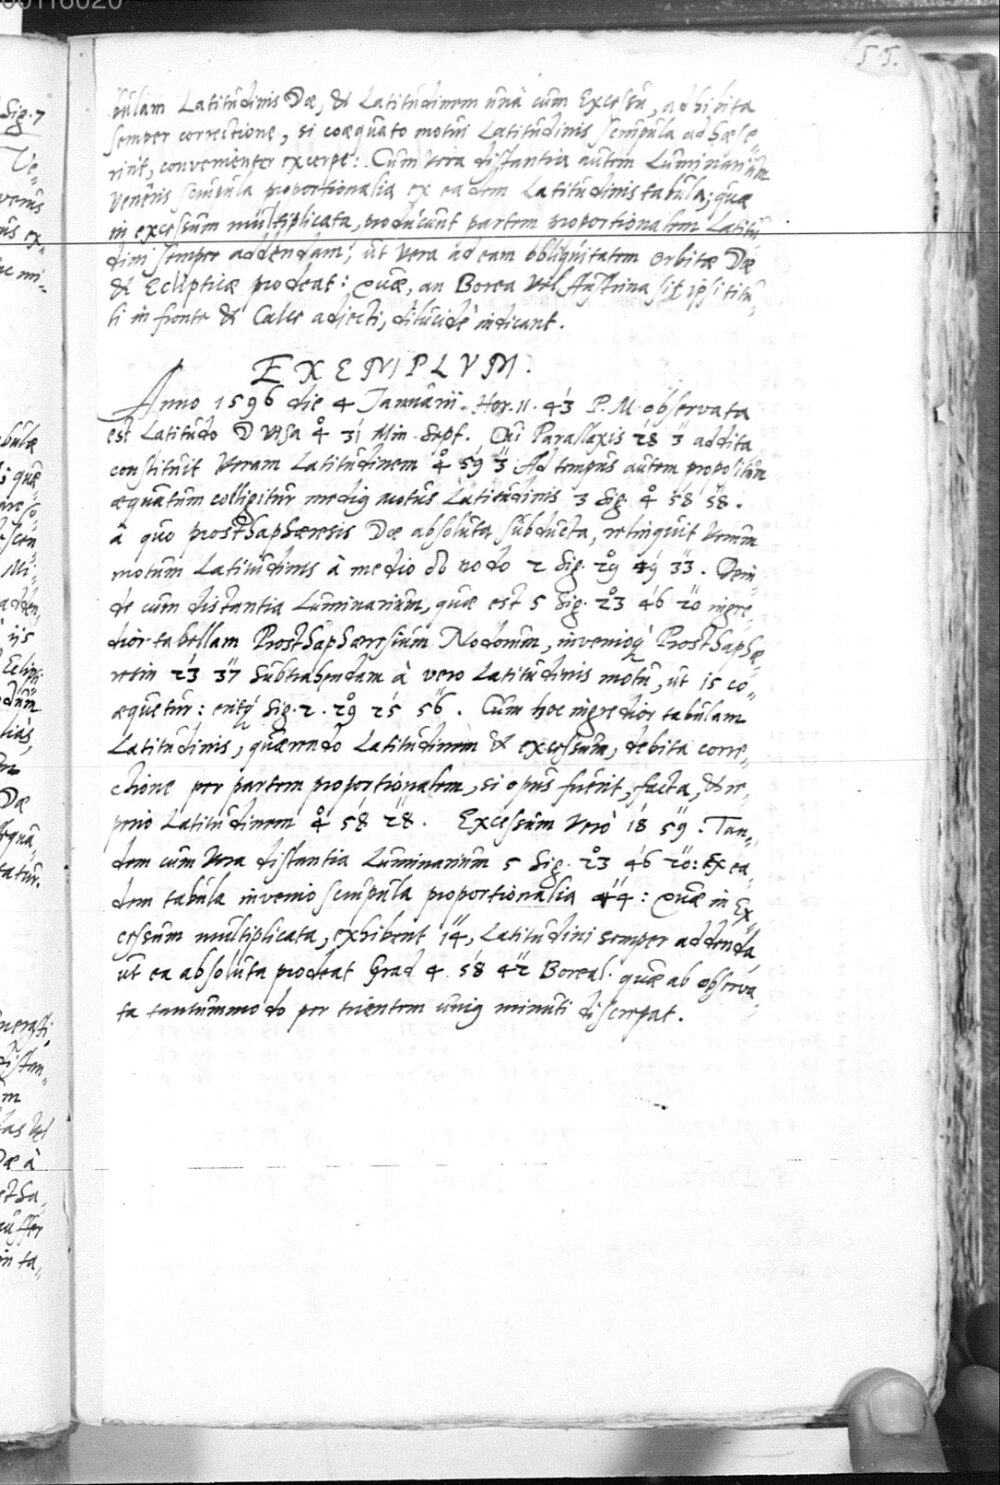 00116020
55.
bulam Latitudinis Dæ, & Latitudinem unà cum Excessu, adhibita
semper correctione, si coæquato motui Latitudinis scrupula adhæse„
rint, convenienter excerpe: Cum vera distantia autem Luminarium
veneris scrupula proportionalia ex eadem Latitudinis tabula; quæ
in excessum multiplicata, producunt partem proportionalem Latitu„
dini semper addendam; ut vera ad eam obliquitatem orbitæ Dæ
& Eclipticæ prodeat: Quæ, an Borea vel Austrina sit ipsi titu„
li in fronte & Calce adjecti, dilucidè indicant.
EXEMPLVM.
Anno 1596 die 4 Januarii. Hor. 11. 43 P. M. observata
est Latitudo D visa 4° 31' Min. Sept. Cui Parallaxis 28' 3" addita
constituit veram Latitudinem 4° 59' 3". Ad tempus autem propositum
æquatum colligitur medig motus Latitudinis 3 Sig. 4° 58' 58".
à quo prosthaphæresis Dæ absoluta subducta, relinquit verum
motum Latitudinis à medio nodo 2 Sig. 29° 49' 33". Dein„
de cum distantia Luminarium, quæ est 5 Sig. 23° 46' 20" ingre„
dior tabellam Prosthaphæresium Nodorum, invenioq Prosthaphæ„
resin 23' 37" Subtrahendam à vero Latitudinis motu, ut is co„
æquetur: Sig. 2. 29° 25' 56". Cum hoc ingredior tabulam
Latitudinis, quærendo Latitudinem & excessum, debita corre„
ctione per partem proportionalem, si opus fuerit, facta, & re„
perio Latitudinem 4° 58' 28". Excessum verò 18' 59". Tan„
dem cum vera distantia Luminarium 5 Sig. 23° 46' 20": Ex ea„
dem tabula invenio scrupula proportionalia 44": Quæ in Ex„
cessum multiplicata, exhibent 14", Latitudini semper addenda,
ut ea absoluta prodeat Grad 4. 58' 42" Boreal. quæ ab observa„
ta tantummodo per trientem unig minuti discrepat.